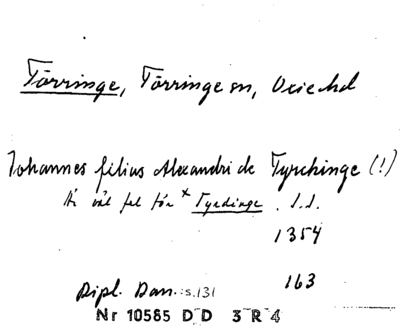 Törringe, Törringe sn, Oxie hd
Johannes filius Alexandri de Tyrchinge (!)
Är väl fel för * Tyrdinge . s.d.
1354
163
Dipl. Dan. s.131
Nr 10585 D D 3 R 4